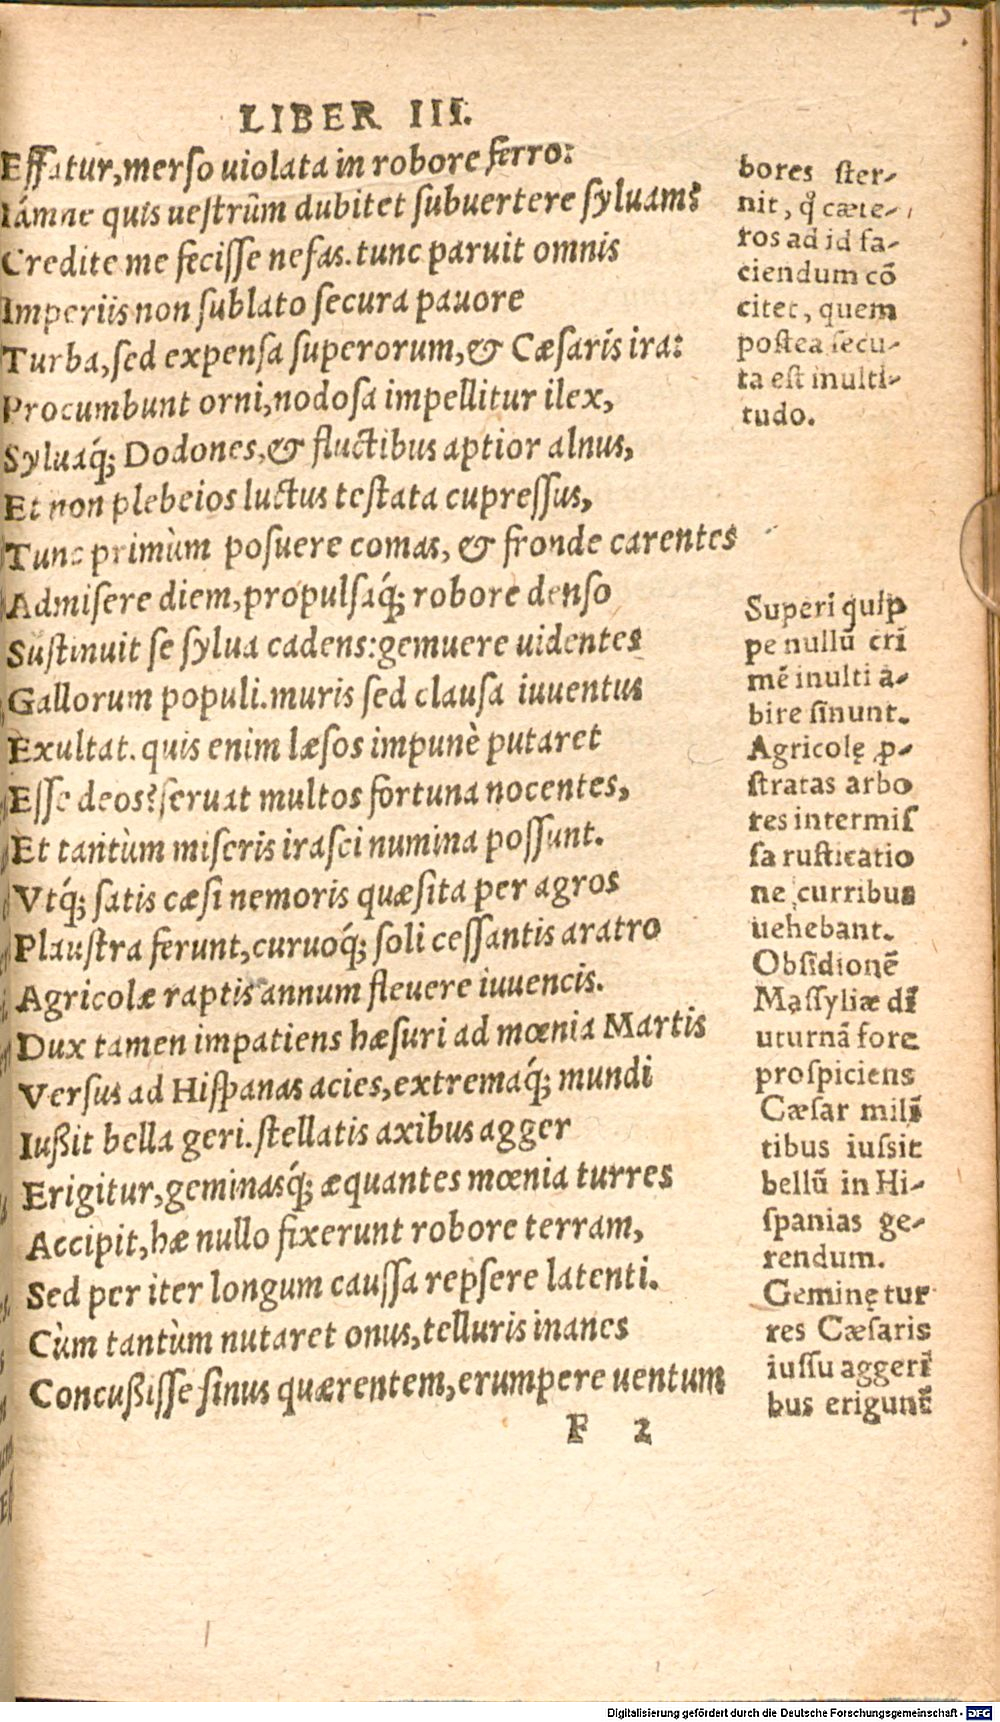 LIBER III.
Effatur, merso uiolata in robore ferro:
Iámne quis uestrûm dubitet subuertere syluam?
Credite me fecisse nefas. tunc paruit omnis
Imperiis non sublato secura pauore
Turba, sed expensa superorum, & Cæsaris ira:
Procumbunt orni, nodosa impellitur ilex,
Syluaq́; Dodones, & fluctibus aptior alnus,
Et non plebeios luctus testata cupressus,
Tunc primùm posuere comas, & fronde carentes
Admisere diem, propulsaq́; robore denso
Sustinuit se sylua cadens: gemuere uidentes
Gallorum populi. muris sed clausa iuuentus
Exultat. quis enim læsos impunè putaret
Esse deos? seruat multos fortuna nocentes,
Et tantùm miseris irasci numina possunt.
Vtq́; satis cæsi nemoris quæsita per agros
Plaustra ferunt, curuoq́; soli cessantis aratro
Agricolæ raptis annum fleuere iuuencis.
Dux tamen impatiens hæsuri ad mœnia Martis
Versus ad Hispanas acies, extremaq́; mundi
Iußit bella geri. stellatis axibus agger
Erigitur, geminasq́; æquantes mœnia turres
Accipit, hæ nullo fixerunt robore terram,
Sed per iter longum caussa repsere latenti.
Cùm tantùm nutaret onus, telluris inanes
Concußisse sinus quærentem, erumpere uentum
F 2
bores ster-
nit, q̊ cæte-
ros ad id fa-
ciendum cō
citet, quem
postea secu-
ta est multi-
tudo.
Superi quip
pe nullū cri
mē inulti a-
bire sinunt.
Agricolę ꝓ-
stratas arbo
res intermis
sa rusticatio
ne curribus
uehebant.
Obsidionē
Massyliæ di
uturnā fore
prospiciens
Cæsar mili
tibus iussit
bellū in Hi-
spanias ge-
rendum.
Geminę tur
res Cæsaris
iussu aggeri
bus erigunt
Digitalisierung gefördert durch die Deutsche Forschungsgemeinschaft - DFG